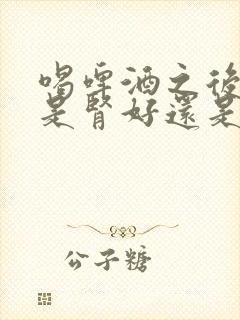 喝啤酒之後
是腎好還是
公子糖